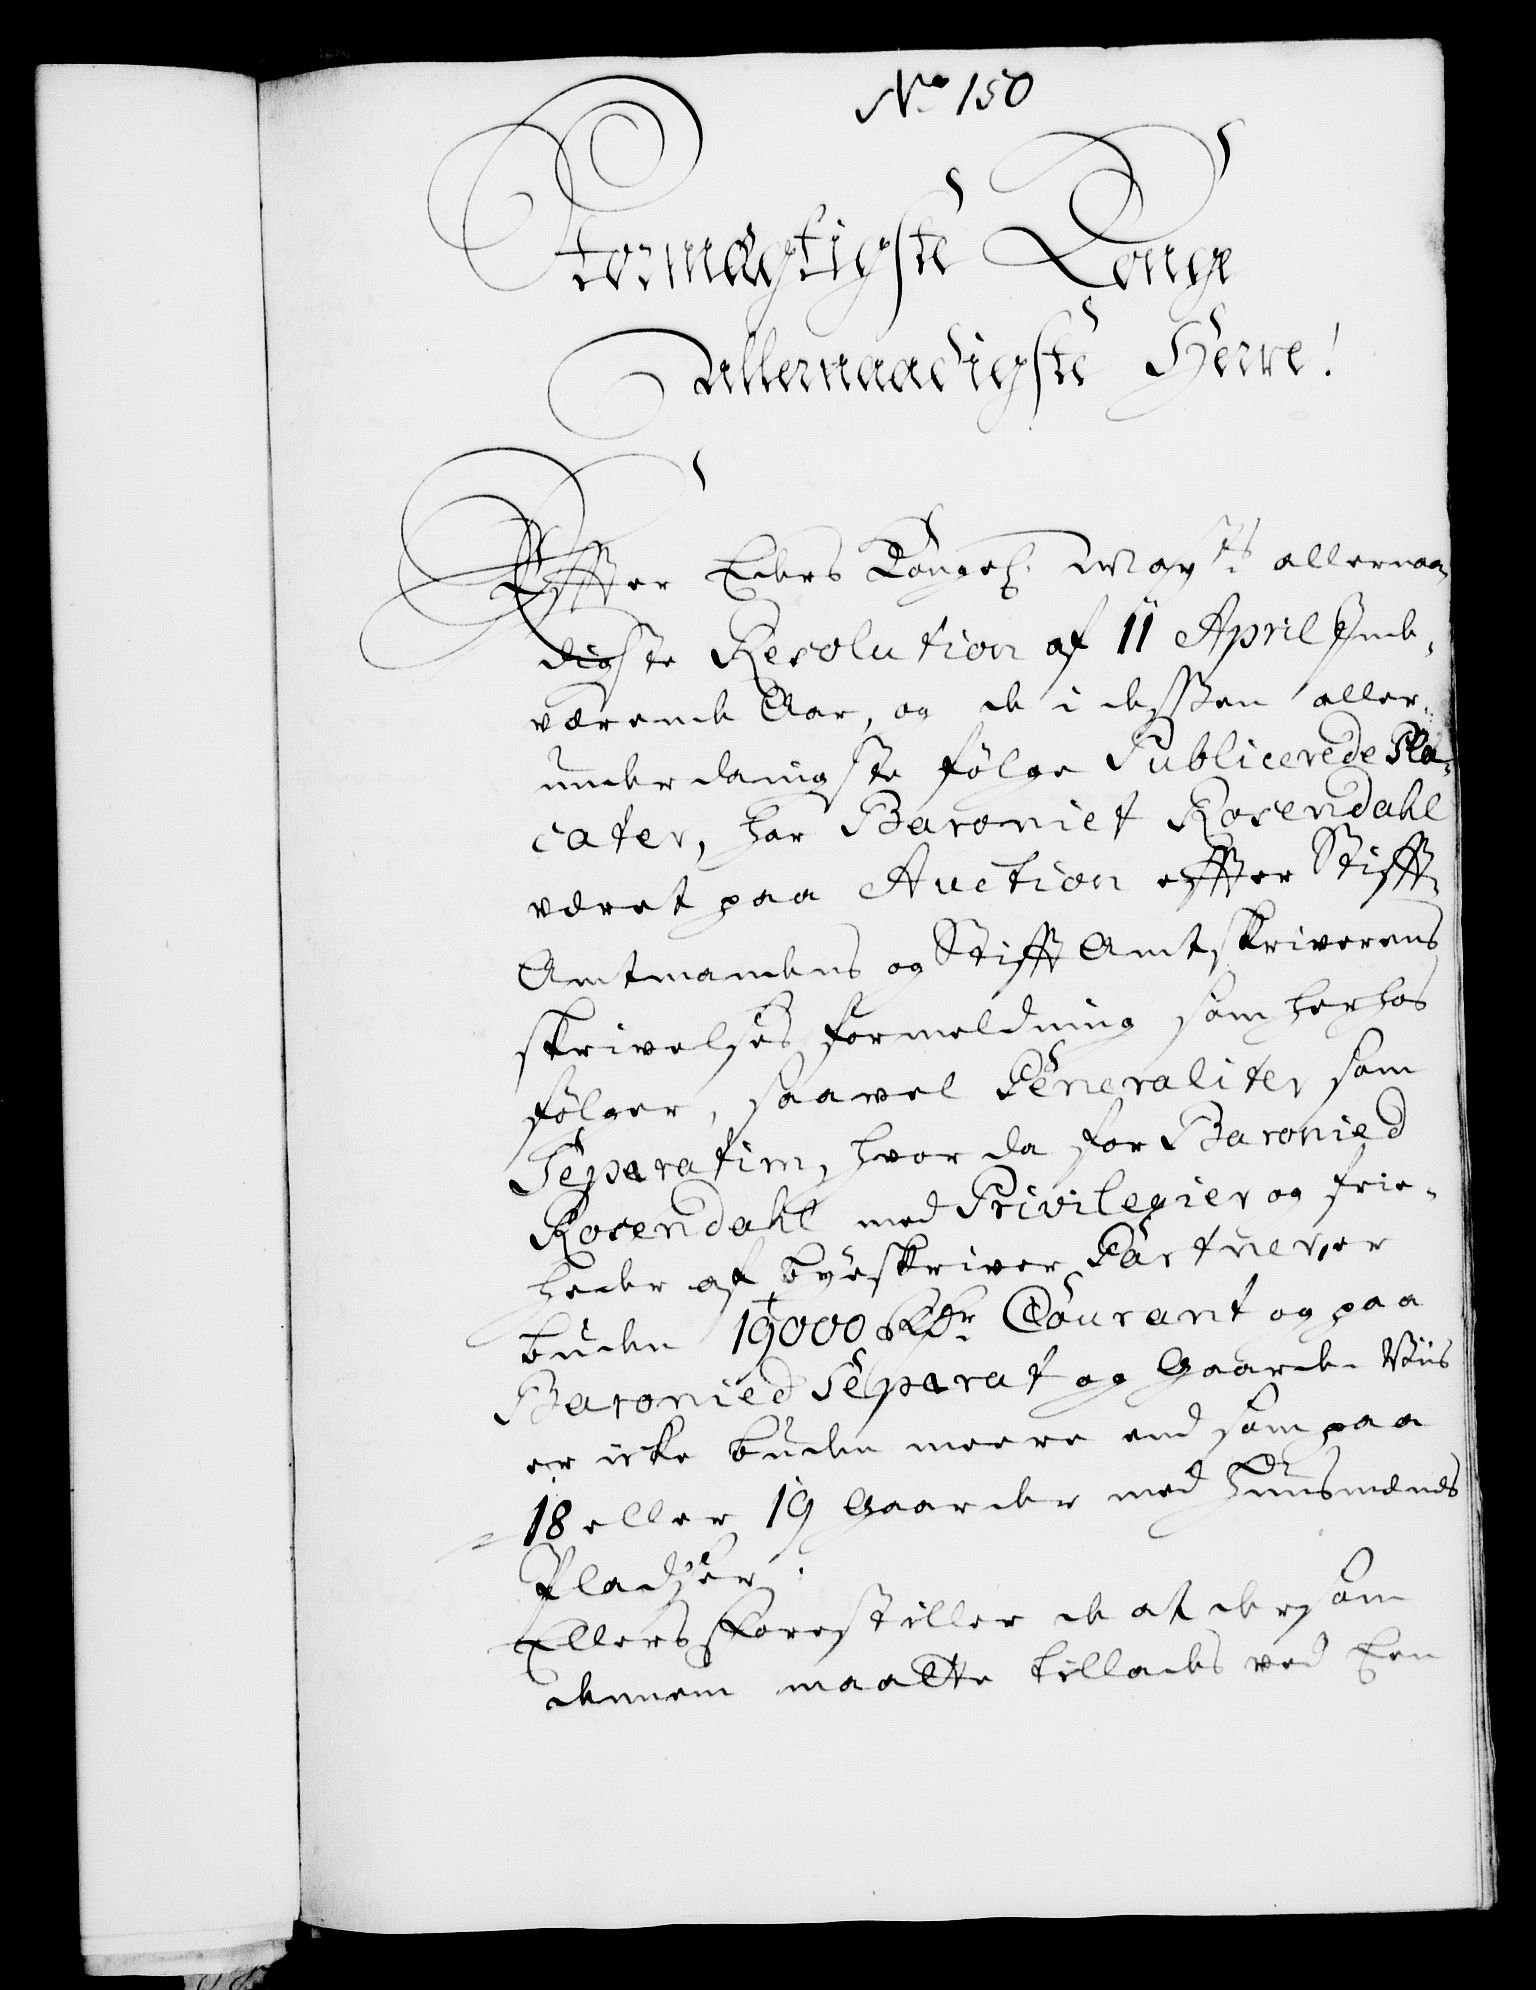 No 150
Stormægtigste Konge
Allernaadigste Herre!
Effter Eders Kongel. May.ts allernaa
digste Resolution af 11 April Inde,
værende Aar, og de i desssen aller,
underdanigste følge Publicerede Pla,
cater, har Baroniet Rosendahl
været paa Auction effter Stifft
Amtmandens og Stifft Amtskriverens
skrivelses formeldning som herhos
følger, saavel Generaliter som
Separatim, hvor da for Baronied
Rosendahl med Privilegier og frie,
heder af byeskriver Gartner, er
buden 19000 Rdr Courant og paa
Baronied Separat og Gaarde Viis
er icke buden meere end som paa
18 eller 19 Gaarder med Huusmænds
Pladzer.
Ellers Forestiller de at dersom
dennem maatte tillades ved Een